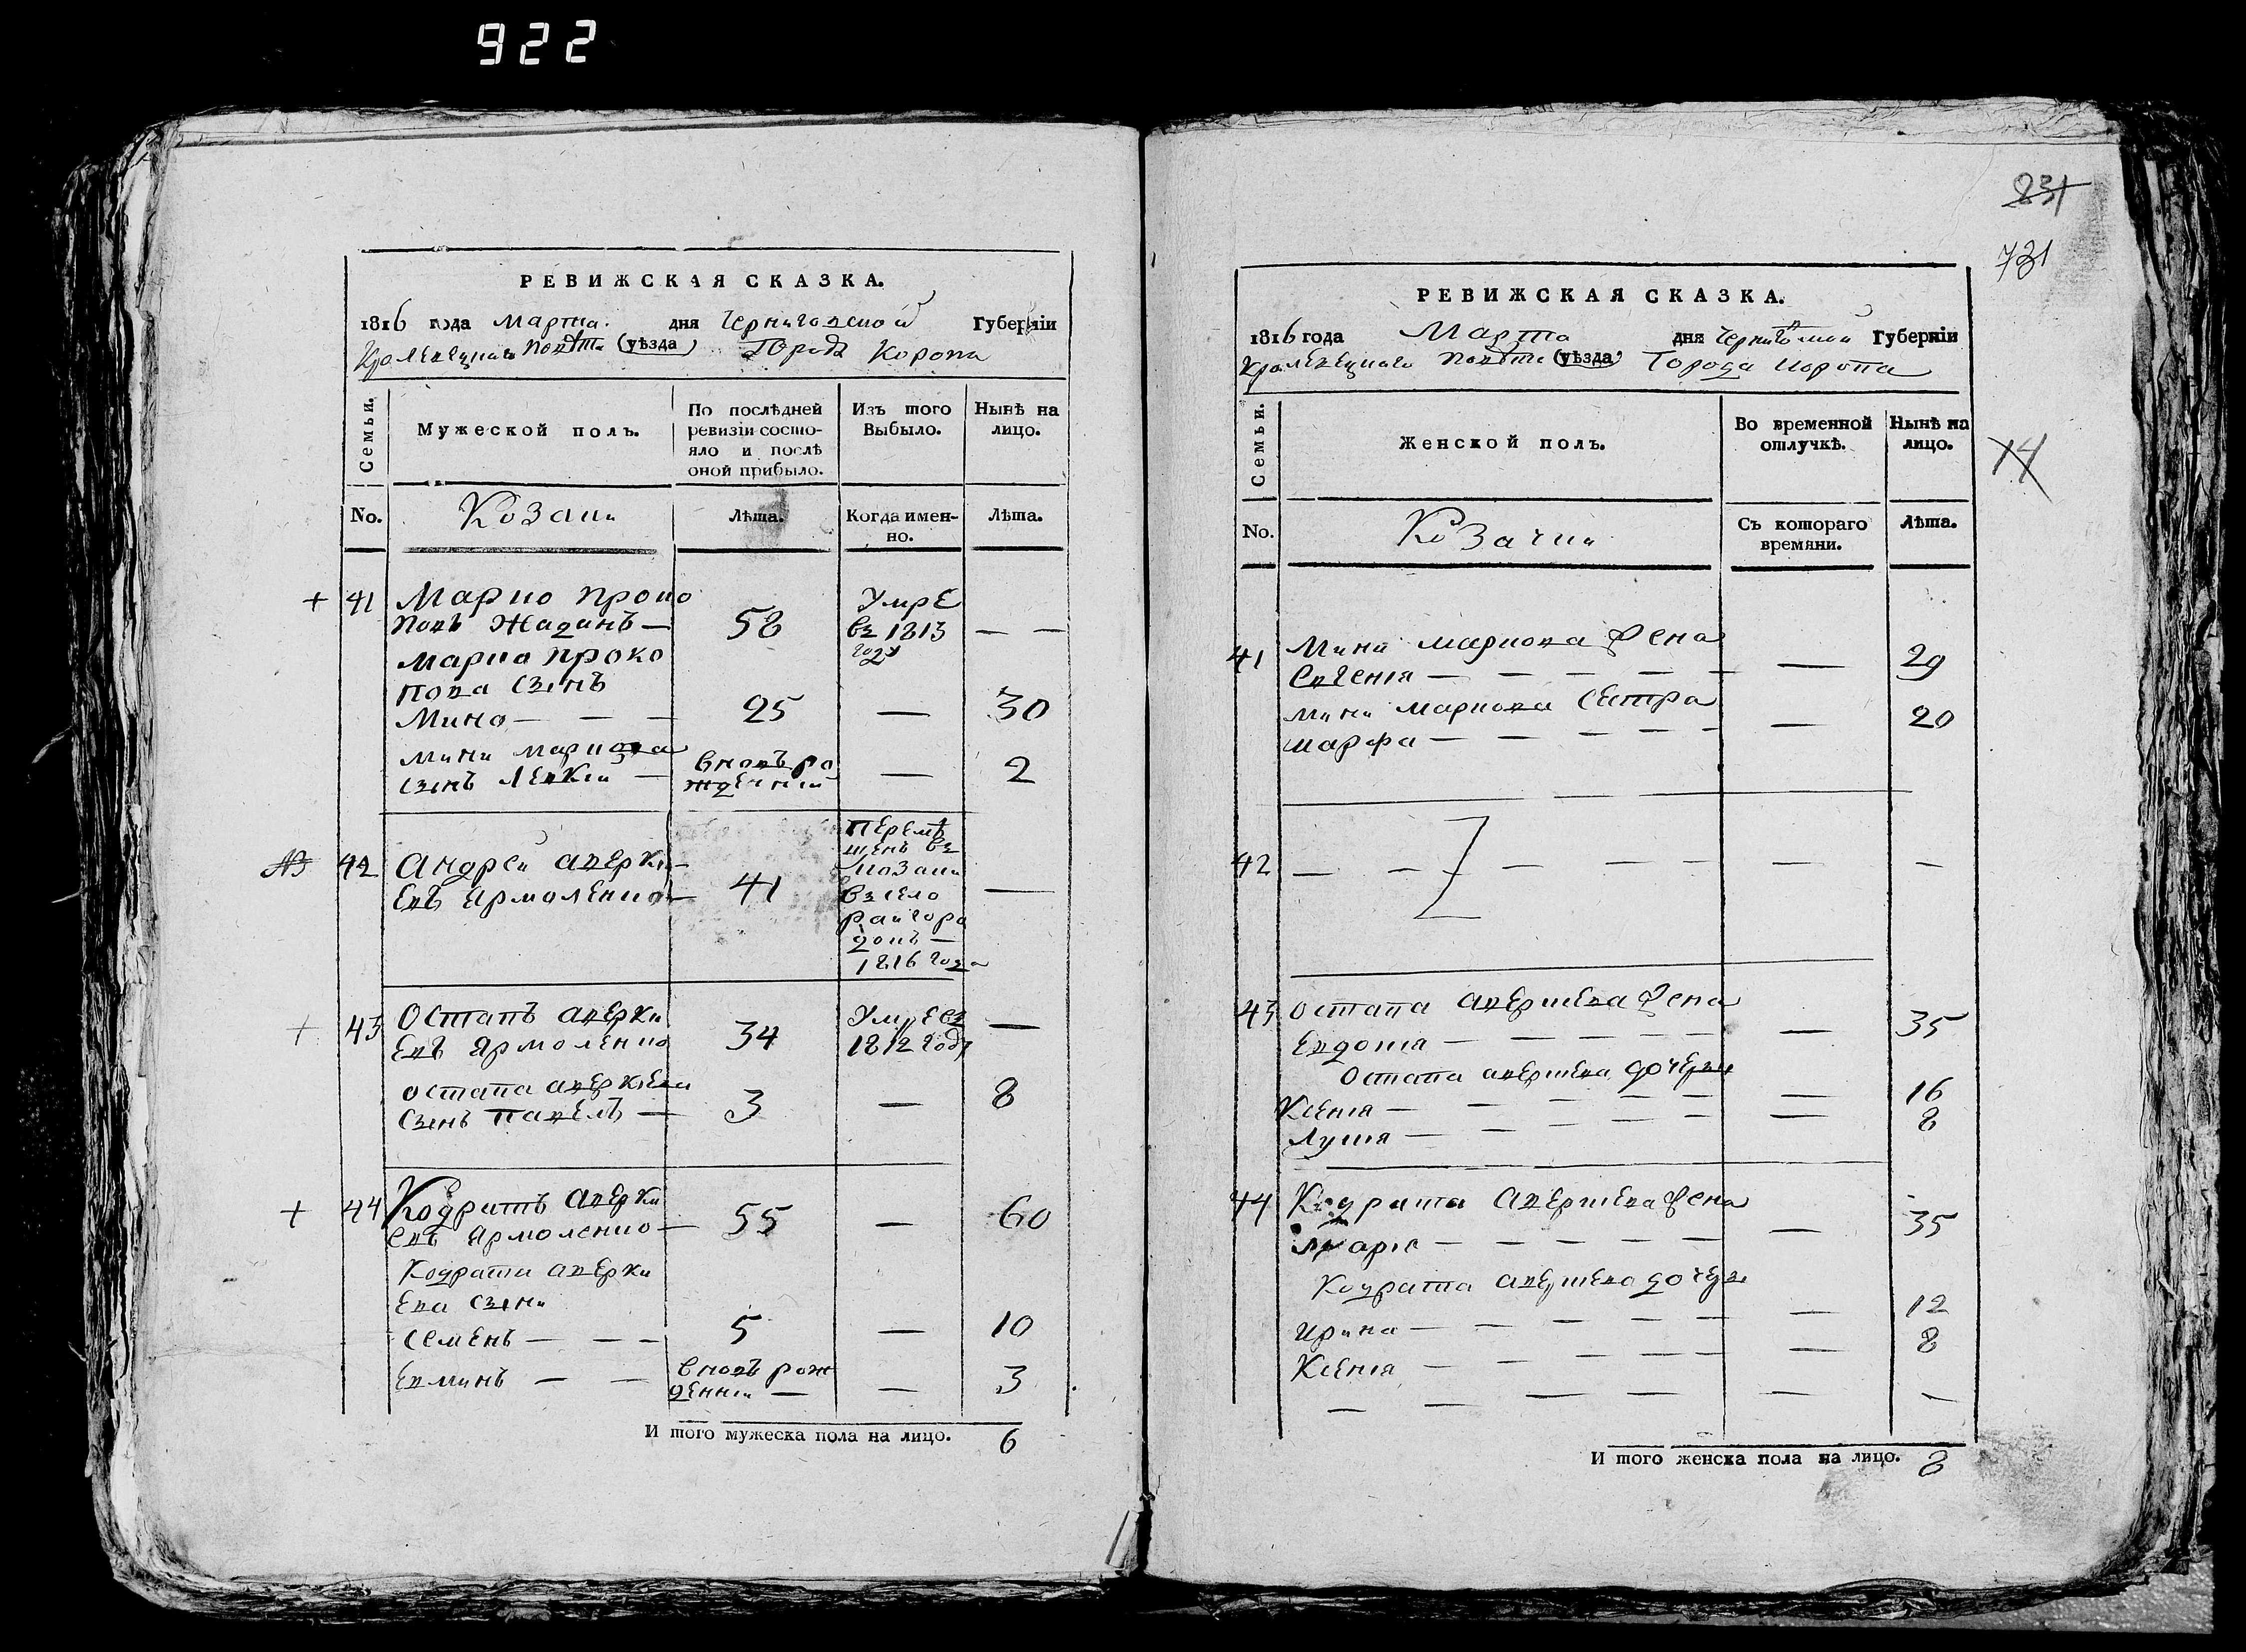 922
РЕВИЖСКАЯ СКАЗКА.
1816 года Марта. дня Черниговской Губерніи
Кролевецкаго Повѣта (уѣзда) Городъ Коропа
Семьи.
Мужеской полъ.
По послѣдней
ревизіи состо-
яло и послѣ
оной прибыло.
Изъ того
Выбыло.
Нынѣ на
лицо.
No.
Козаки
Лѣта.
Когда имен-
но.
Лѣта.
41 Марко Проко
повъ Жаданъ —
58
Умре
въ 1813
году
— —
Марка Проко
пова сынъ
Мина — — —
25
—
30
Мини Маркова
сынъ Левкій —
вновь ро
жденній
—
2
42 Андрей Аверки
евъ Ярмоленко —
41
Перемѣ
щенъ въ
козаки
въ село
Райгоро
докъ —
1816 года
—
43 Остапъ Аверки
евъ Ярмоленко
34
Умре въ
1812 году
—
Остапа Аверкіева
сынъ Павелъ —
3
—
8
44 Кодратъ Аверки
евъ Ярмоленко —
55
—
60
Кодрата Аверки
ева сыни
Семенъ — — —
5
—
10
Евминъ — —
вновь рож
денніи —
—
3
И того мужеска пола на лицо. 6
831
731
РЕВИЖСКАЯ СКАЗКА.
1816 года Марта дня Губерніи
Кролевецкаго Повѣта (уѣзда) Города Коропа
Семьи.
Женской полъ.
Во временной
отлучкѣ.
Нынѣ на
лицо.
14
No.
Козачки
Съ котораго
времяни.
Лѣта.
41 Мини Маркова жена
Евгенія — — — — —
—
29
Мини Маркова сестра
Марфа — — — — —
—
20
42 — — — — —
—
—
43 Остапа Аверкіева жена
Евдокія — — — —
—
35
Остапа Аверкіева дочери
Ксенія — — — — —
—
16
— — — — —
—
8
44 Кодрата Аверкіева жена
— — — — —
—
35
Кодрата Аверкіева дочери
Ирина — — — — —
—
12
Ксенія — — — —
—
8
— — — —
—
—
И того женска пола на лицо. 8